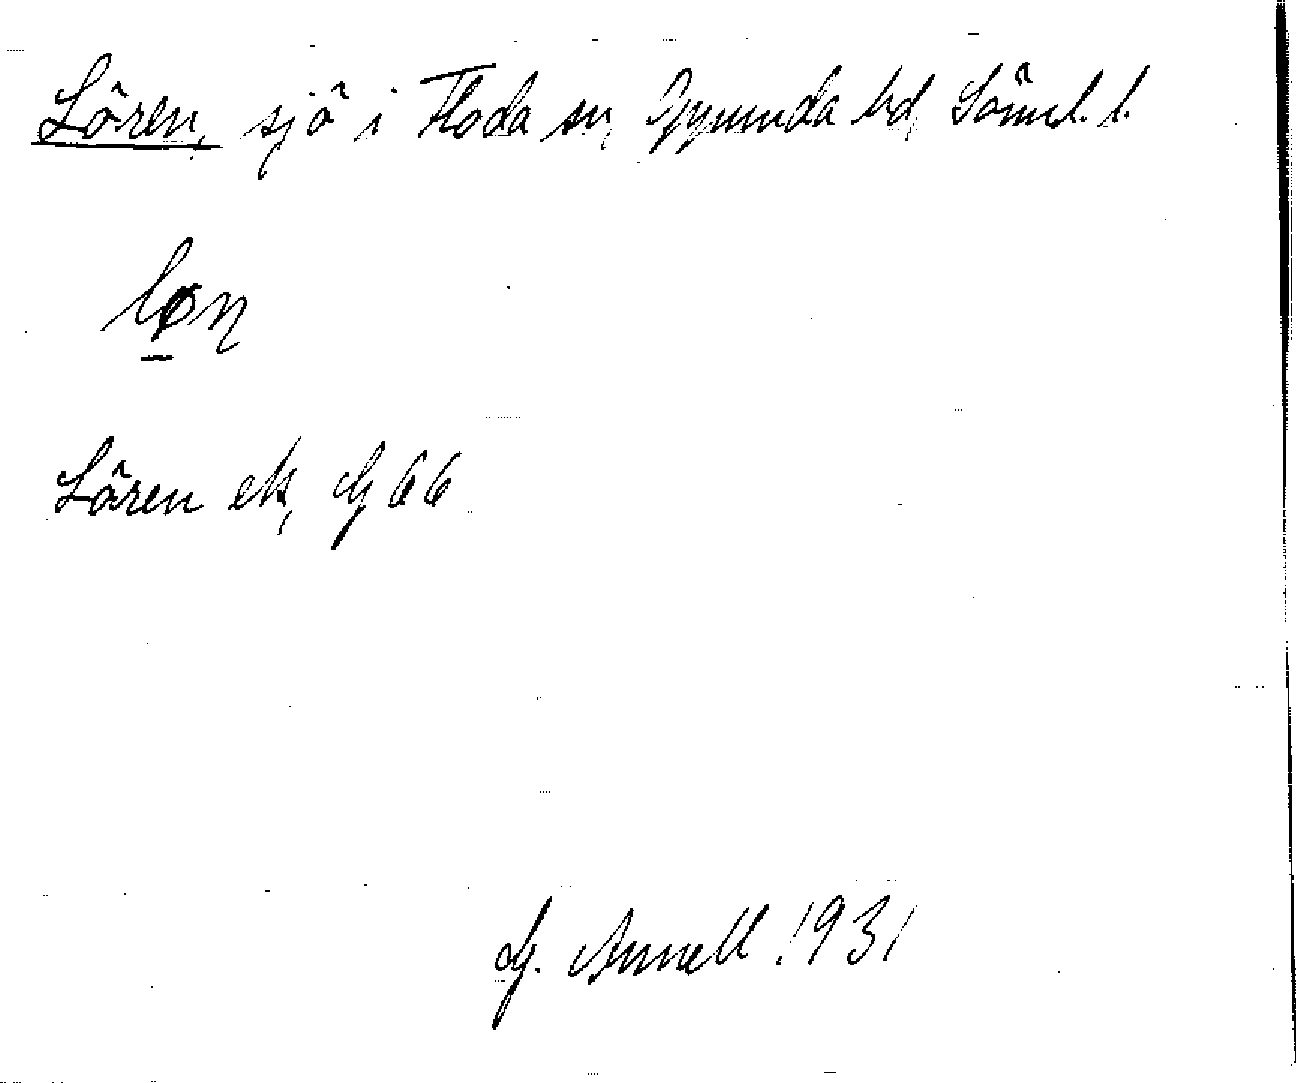 Lören, sjö i Floda sn, Oppunda hd, Söml. l.
løn
Lören ek, G 66
G. Annell. 1931